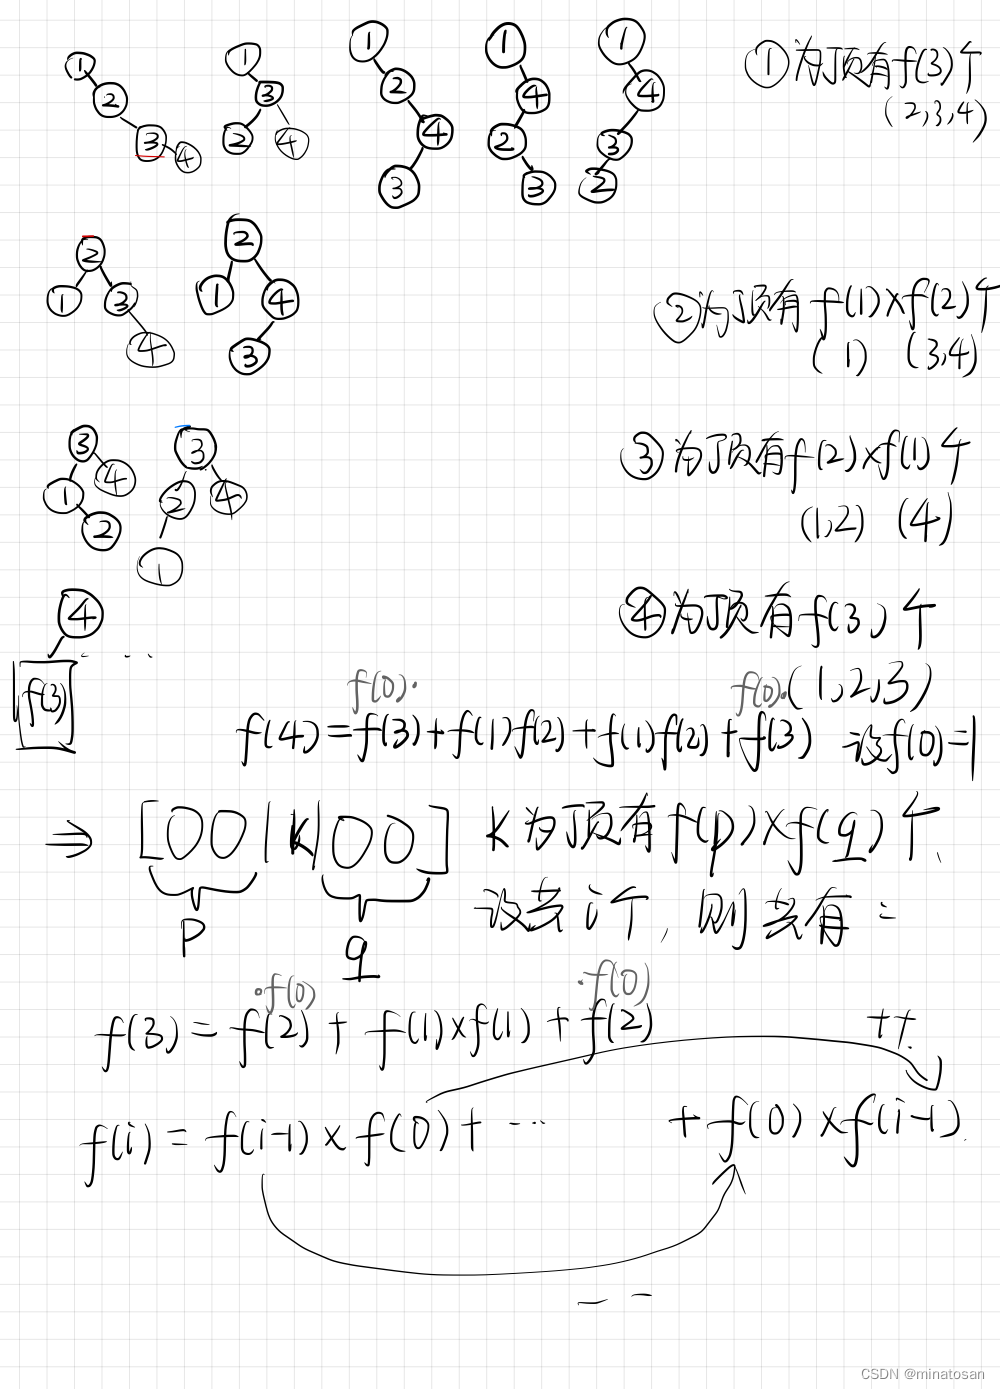 ① ② ③ ④
① ③ ② ④
① ② ④ ③
① ④ ② ③
① ④ ③ ②
①为顶有f(3)个
(2,3,4)
② ① ③ ④
② ① ④ ③
②为顶有 f(1)×f(2)个
(1) (3,4)
③ ④ ① ②
③ ② ④ ①
③为顶有f(2)×f(1)个
(1,2) (4)
④
f(3)
④为顶有f(3)个
(1,2,3)
f(0)· f(0)·
f(4)=f(3)+f(1)f(2)+f(1)f(2)+f(3) 设f(0)=1
⇒ [OO|K|OO] K为顶有f(p)×f(q)个.
p q
设共i个, 则共有:
·f(0) ·f(0)
f(3) = f(2) + f(1)×f(1) + f(2)
++
f(i) = f(i-1) × f(0) + ... + f(0) × f(i-1)
CSDN @minatosan